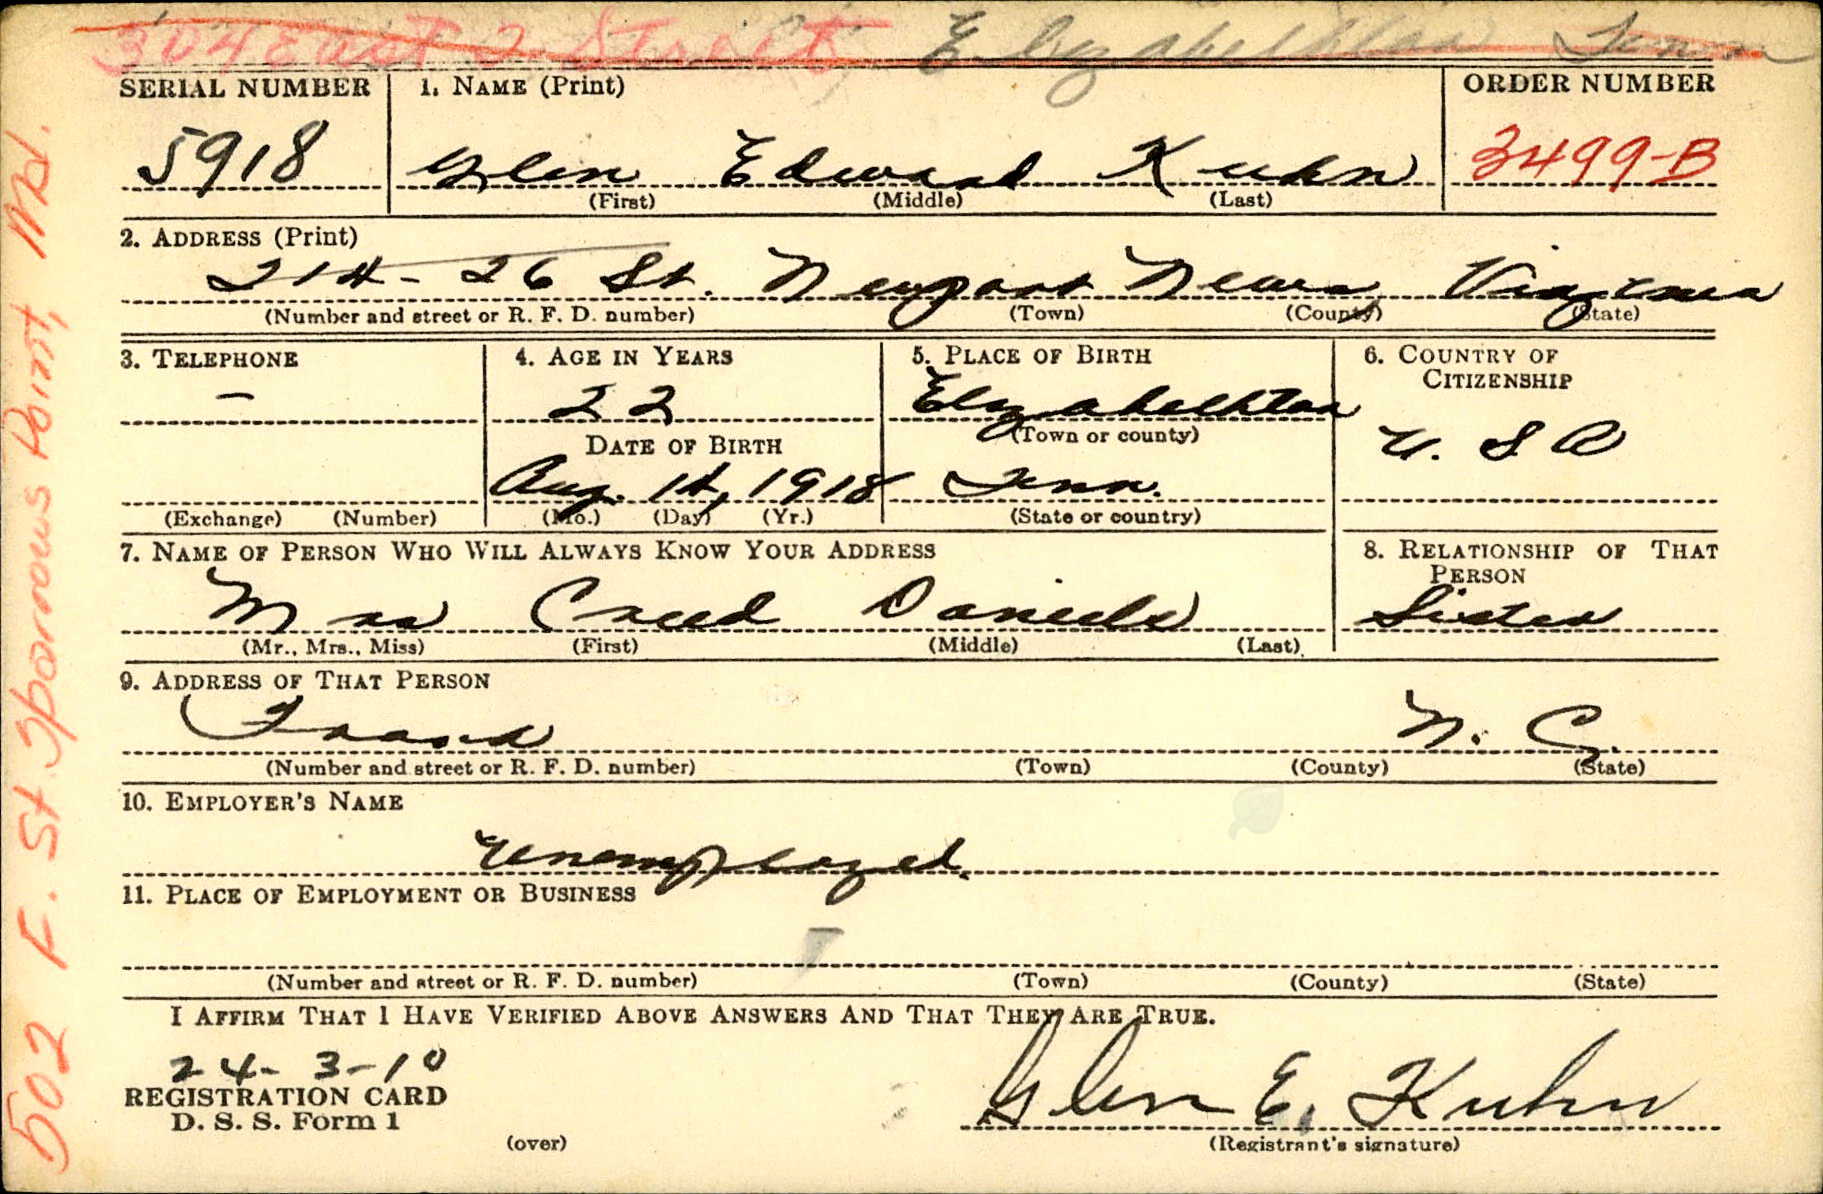 304 East 2 Street, Elizabethton Tenn
SERIAL NUMBER 1. NAME (Print) ORDER NUMBER
5918 Glen Edward Kuhn 3499-B
(First) (Middle) (Last)
2. ADDRESS (Print)
214 - 26 St. Newport News Virginia
(Number and street or R. F. D. number) (Town) (County) (State)
3. TELEPHONE 4. AGE IN YEARS 5. PLACE OF BIRTH 6. COUNTRY OF
CITIZENSHIP
- 22 Elizabethton
DATE OF BIRTH (Town or county) U. S A
Aug. 14, 1918 Tenn.
(Exchange) (Number) (Mo.) (Day) (Yr.) (State or country)
7. NAME OF PERSON WHO WILL ALWAYS KNOW YOUR ADDRESS 8. RELATIONSHIP OF THAT
PERSON
Mrs Creed Daniels Sister
(Mr., Mrs., Miss) (First) (Middle) (Last)
9. ADDRESS OF THAT PERSON
N. C.
(Number and street or R. F. D. number) (Town) (County) (State)
10. EMPLOYER'S NAME
Unemployed.
11. PLACE OF EMPLOYMENT OR BUSINESS
(Number and street or R. F. D. number) (Town) (County) (State)
I AFFIRM THAT I HAVE VERIFIED ABOVE ANSWERS AND THAT THEY ARE TRUE.
24- 3-10
REGISTRATION CARD
D. S. S. Form 1
Glen E. Kuhn
(over) (Registrant's signature)
502 F. St. Sparrows Point, Md.